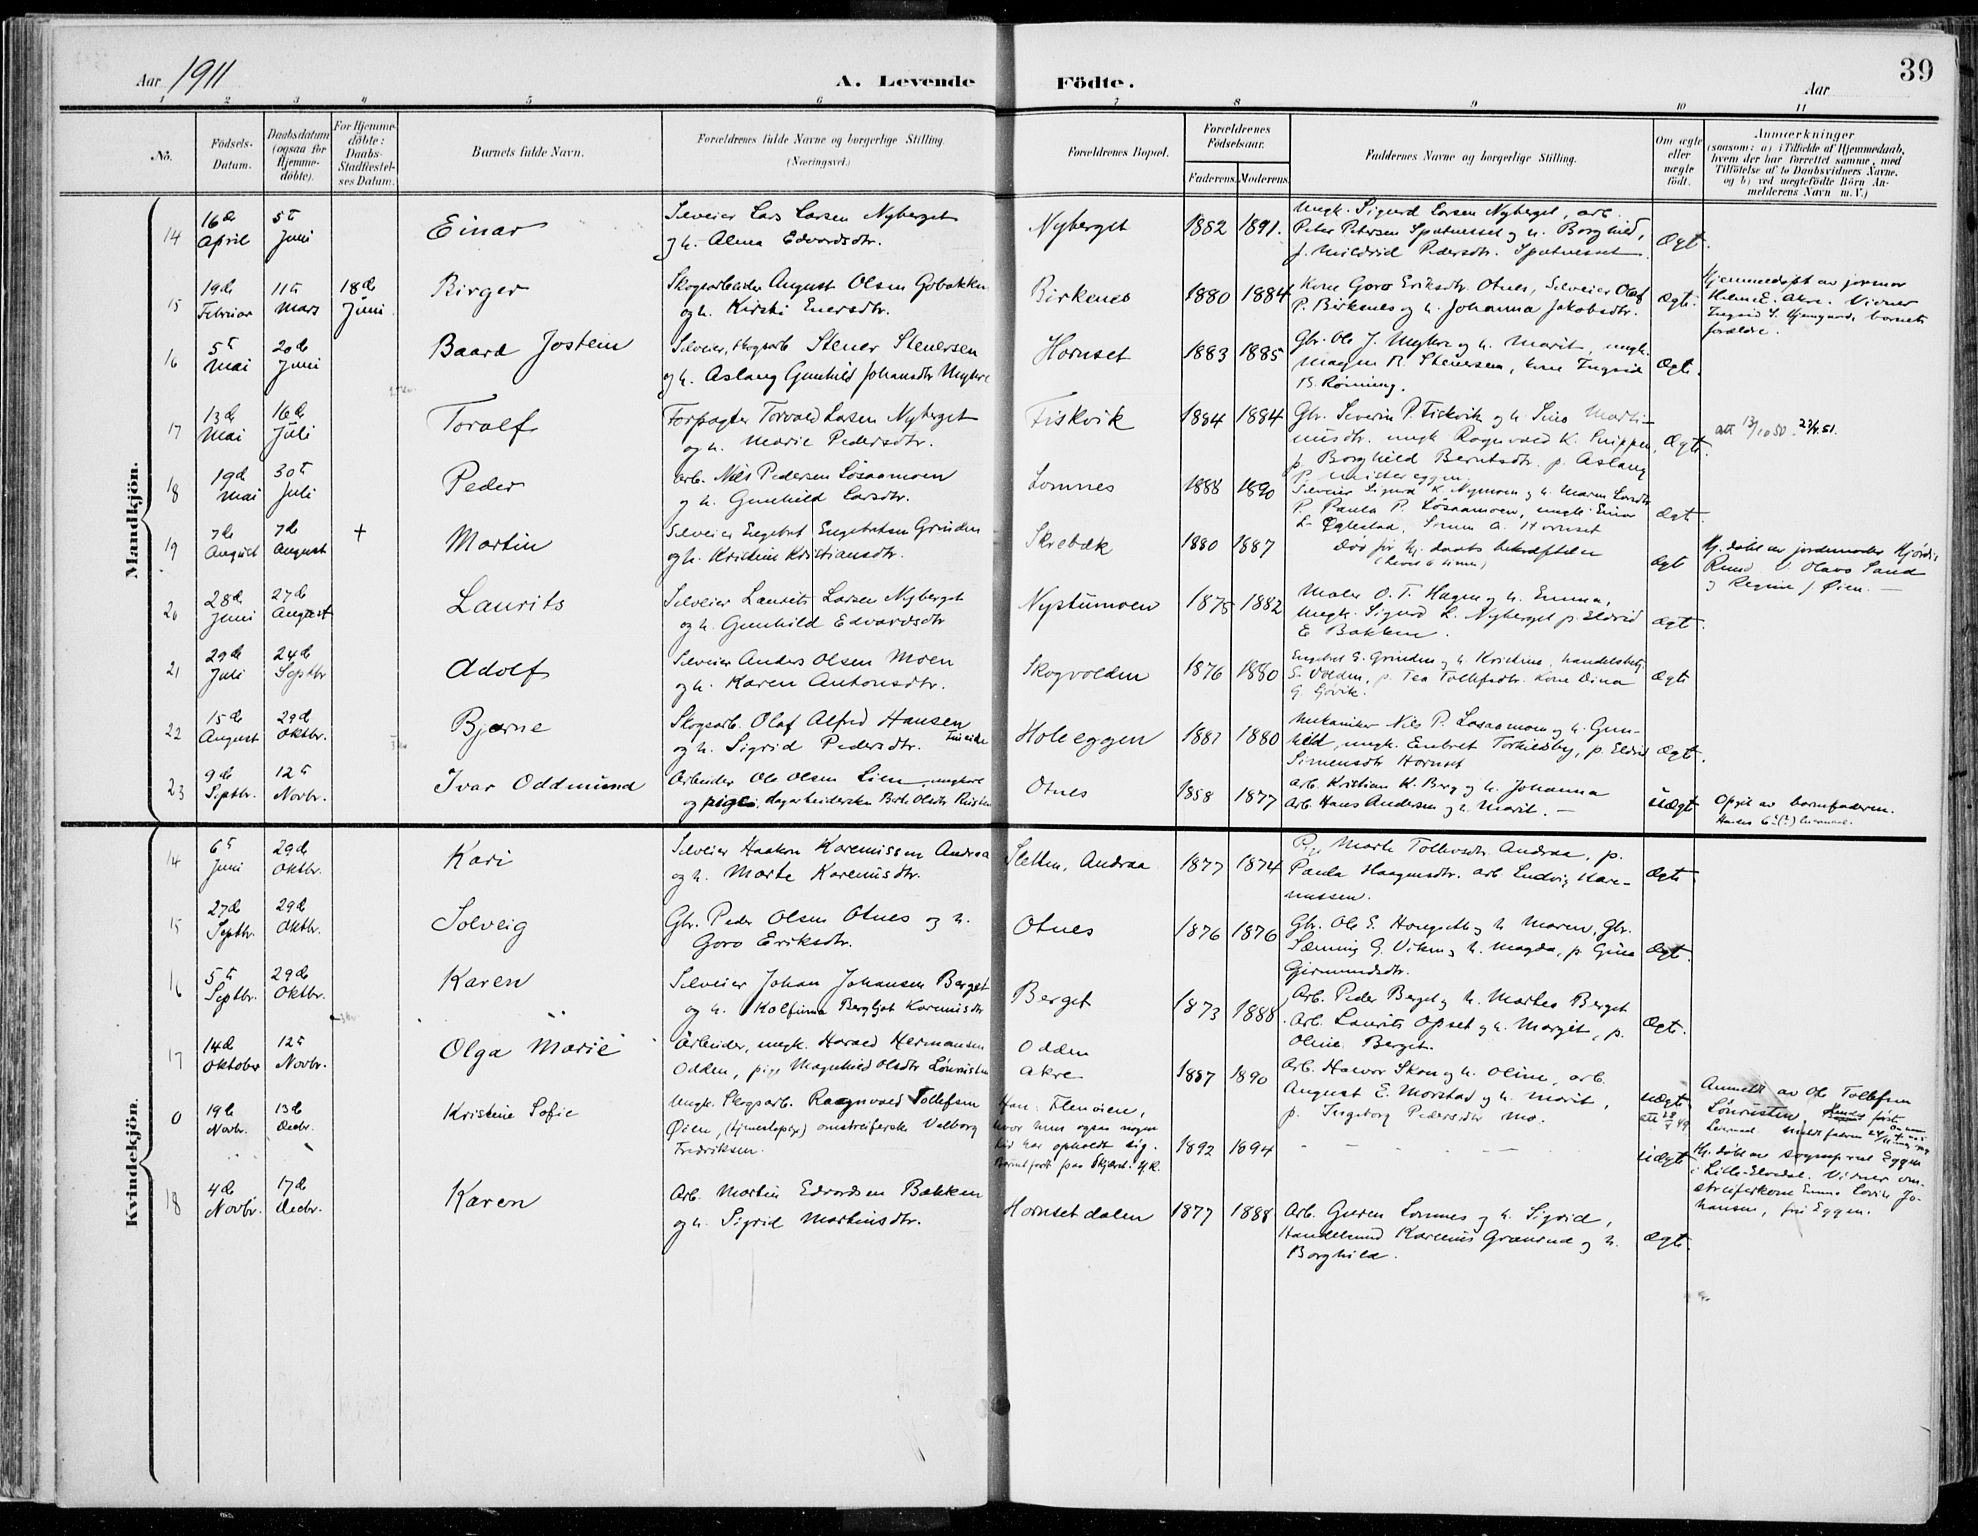 39
Aar 1911
A. Levende
Födte.
Aar
1 2 3 4 5 6 7 8 9 10 11
No.
Födsels-
Datum.
Daabsdatum
(ogsaa for
Hjemme-
döbte).
For Hjemme-
döbte:
Daabs-
Stadfæstel-
ses Datum.
Barnets fulde Navn.
Forældrenes fulde Navne og borgerlige Stilling.
(Næringsvei.)
Forældrenes Bopæl.
Forældrenes
Födselsaar.
Faderens. Moderens.
Faddernes Navne og borgerlige Stilling.
Om ægte
eller
uægte
födt.
Anmærkninger
(saasom: a) i Tilfælde af Hjemmedaab,
hvem der har forrettet samme, med
Tilföielse af to Daabsvidners Navne.
og b) ved uægtefödte Börn An-
melderens Navn m. V.)
Mandkjön.
14
16de April
5te Juni
Einar
Selveier Lars Larsen Nyberget
og h. Alma Edvardsdtr.
Nyberget
1882 1891.
Ungk. Sigurd Larsen Nyberget, arb.
Peter Petersen Spatnesset og h. Borghild,
p. Mildrid Pedersdtr. Spatnesset
Ægt.
15
19de Februar
11te Mars
18de Juni
Birger
Skogsarbeider August Olsen Gobakken
og h. Kirsti Enersdtr.
Birkenes
1880 1884
Kone Goro Eriksdtr. Otnes, Selveier Olaf
P. Birkenes og h. Johanna Jakobsdtr.
Ægte
Hjemmedøpt av jormor
Helene E. Akre. Vidner
forældre.
16
5te Mai
20de Juni
Baard Jostein
Selveier, skogsarb Stener Stenersen
og h. Aslaug Gunhild Johansdtr Myhre
Hornset
1883 1885
Gbr. Ole J. Myhre og h. Marit, ungk.
Magnu R. Stenersen, kone Ingrid
B. Rønning.
Ægte.
17
13de Mai
16de Juli
Toralf
Forpagter Torvald Larsen Nyberget
og h. Marie Pedersdtr.
Fiskvik
1884 1884
Gbr. Severin P. Fiskvik og h. Sina Marti-
nusdtr. ungk Ragnvald K. Snippen,
p. Borghild Berntsdtr. p. Aslaug
P. Mister eggen.
Ægte.
att 13/10 50. 23/4 51.
18
19de Mai
30te Juli
Peder
Arb. Nils Pedersen Løsaamoen
og h. Gunhild Larsdtr.
Lomnes
1888 1890
Selveier Sigurd K. Nymoen og h. Maren Larsdtr
P. Paula P. Løsaamoen, ungk Einar
L. Øglestad, Simen A. Hornset
Ægt.
19
7de August
7de August
+
Martin
Selveier Engebret Engebretsen Grinden
og h. Kristine Kristiansdtr.
Skrebæk
1880 1887
Død før kj. daabs bekræftelse
(Levet 6 timer)
Ægt
Hj. døbt av jordemoder Hjørdis
Rund V. Olava Sand
og Regine J Øien. —
20
28de Juni
27de August
Laurits
Selveier Laurits Larsen Nyberget
og h. Gunhild Edvardsdtr
Nystumoen
1875 1882
Maler O. T. Hagen og h. Emma,
Ungk. Sigurd L. Nyberget p. Eldrid
E Bakken.
Ægt.
21
29de Juli
24de Septbr
Adolf
Selveier Anders Olsen Moen
og h. Karen Antonsdtr.
Skogvolden
1876 1880
Engebret E. Grinden og h. Kristine, handelsbetj.
S. Volden, p. Tea Tollefsdtr. Kone Dina
G. Gjøvik.
Ægte
22
15de August
29de Oktbr.
Bjarne
Skogsarb. Olaf Alfred Hansen
og h. Sigrid Pedersdtr.
Holeeggen
1881 1880
Mekaniker Nils P. Løsaamoen og h. Gun-
hild, ungk. Embret Torkildsby, p. Eldrid
Simensdtr Hornset
Ægt.
23
9de Septbr.
12te Novbr.
Ivar Oddmund
Arbeider Ole Olsen Lien, ungkarl
og pige, dagarbeiderske Berte Olsdtr Rusten
Otnes
1858 1877
Arb. Kristian K. Berg og h. Johanna
Arb. Hans Andersen og h. Marit. —
Uægt
Opgit av barnefaderen.
Kvindekjön.
14
6te Juni
29de Oktbr.
Kari
Selveier Haakon Karenussen Andraa
og h. Marte Karenusdtr.
Sletten, Andraa
1877 1874
Pige Marte Tollevsdtr. Andraa, p.
Paula Haagensdtr. arb Ludvig Kare-
nussen.
Ægte
15
27de Septbr.
29de Oktbr.
Solveig
Gbr. Peder Olsen Otnes og h.
Goro Eriksdtr.
Otnes
1876 1876
Gbr. Ole E. Hongseth og h Maren, Gbr.
Sæming G. Viken og h. Magda, p. Gina
Geirmundsdtr.
Ægt.
16
5te Septbr.
29de Oktbr.
Karen
Selveier Johan Johansen Berget
og h. Kolfinna Bergljot Karenusdtr
Berget
1873 1888
Arb. Peder Berget og h. Martea Berget
Arb. Laurits Opset og h. Margit, p.
Oline Berget.
Ægt.
17
14de Oktober
12te Novbr.
Olga Marie
Arbeider, ungk. Harald Hermansen
Odden, pige Magnhild Olsdtr Lønrusten
Odden
Akre
1887 1890
Arb. Halvor Skou og h. Oline, arb.
August E. Morstad og h. Marit,
p. Ingeborg Pedersdtr Mo.
uægt
Anmeldt av Ole Tollefsen
Lønrusten,
0
19de Novbr.
13de Decbr.
Kristine Sofie
Ungk. Skogsarb. Ragnvald Tollefsen
Øien, omstreiferske Valborg
Fredriksen.
Han: Flenøien,
hvor hun ogsaa nogen
tid har opholdt sig.
1892 1894
— — — —
uægt
Hj. døbt av sogneprest Eggen
i Lille-Elvedal. Vidner om-
streiferkone Emma Lovise Jo-
hansen, fru Eggen.
18
4de Novbr.
17de Decbr.
Karen
Arb. Martin Edvardsen Bakken
og h. Sigrid Martinsdtr.
Hornsetdalen
1877 1888
Arb. Gueren Lomnes og h. Sigrid,
Handelsmd Karenus Granrud og h.
Borghild.
Ægte.